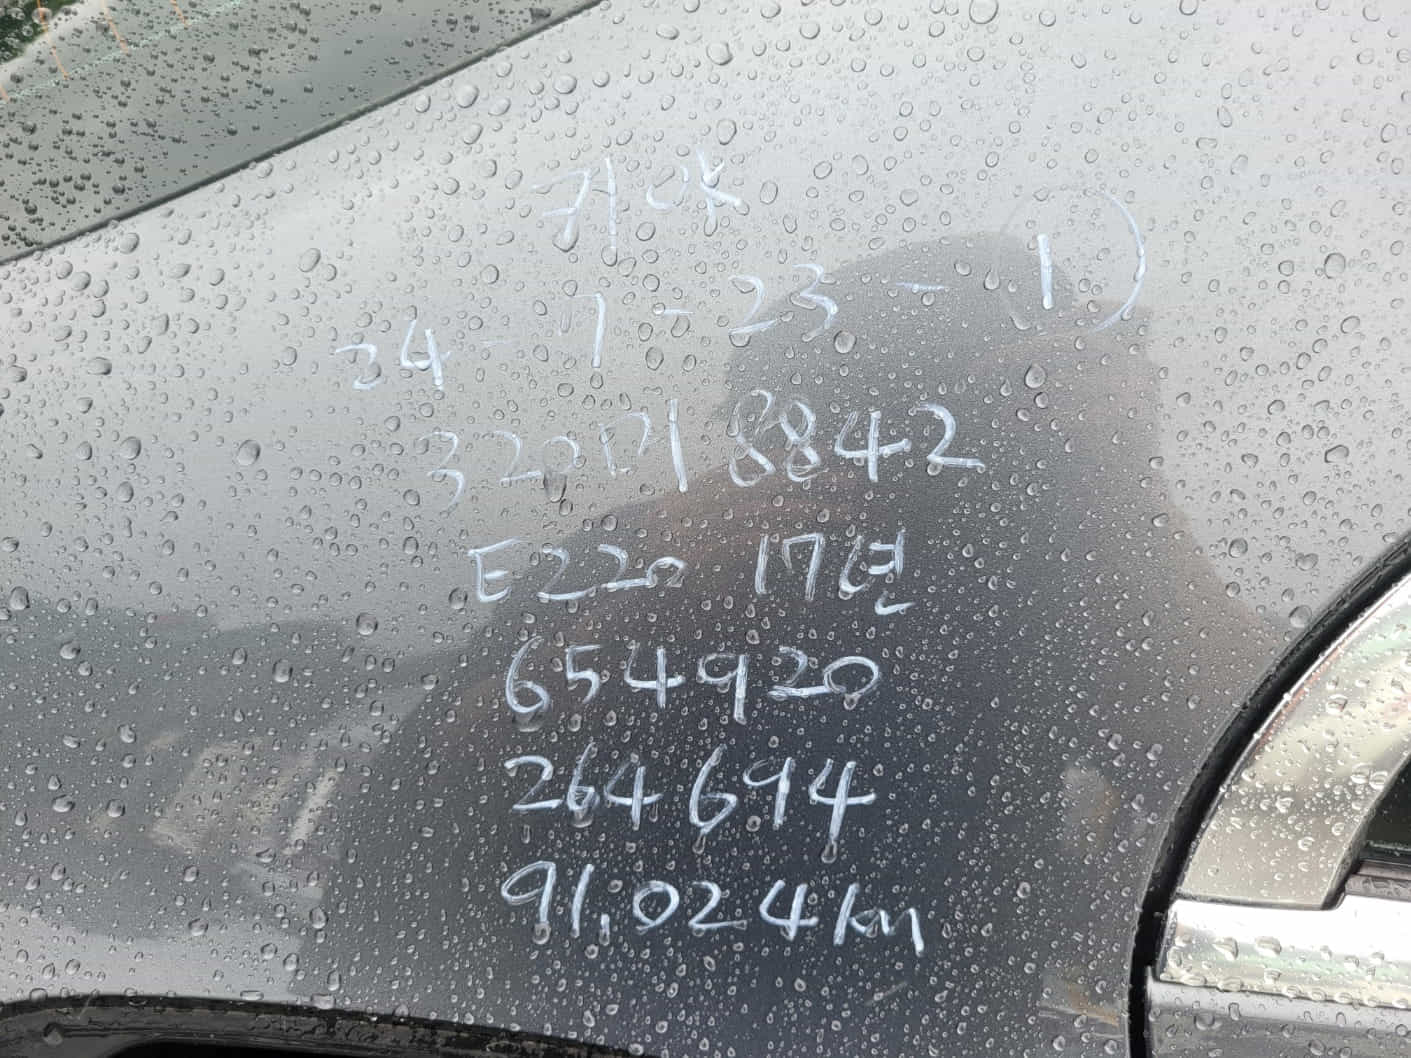 귀야
24-7-23-①
320머8842
E220 17년
654920
264694
91,024km